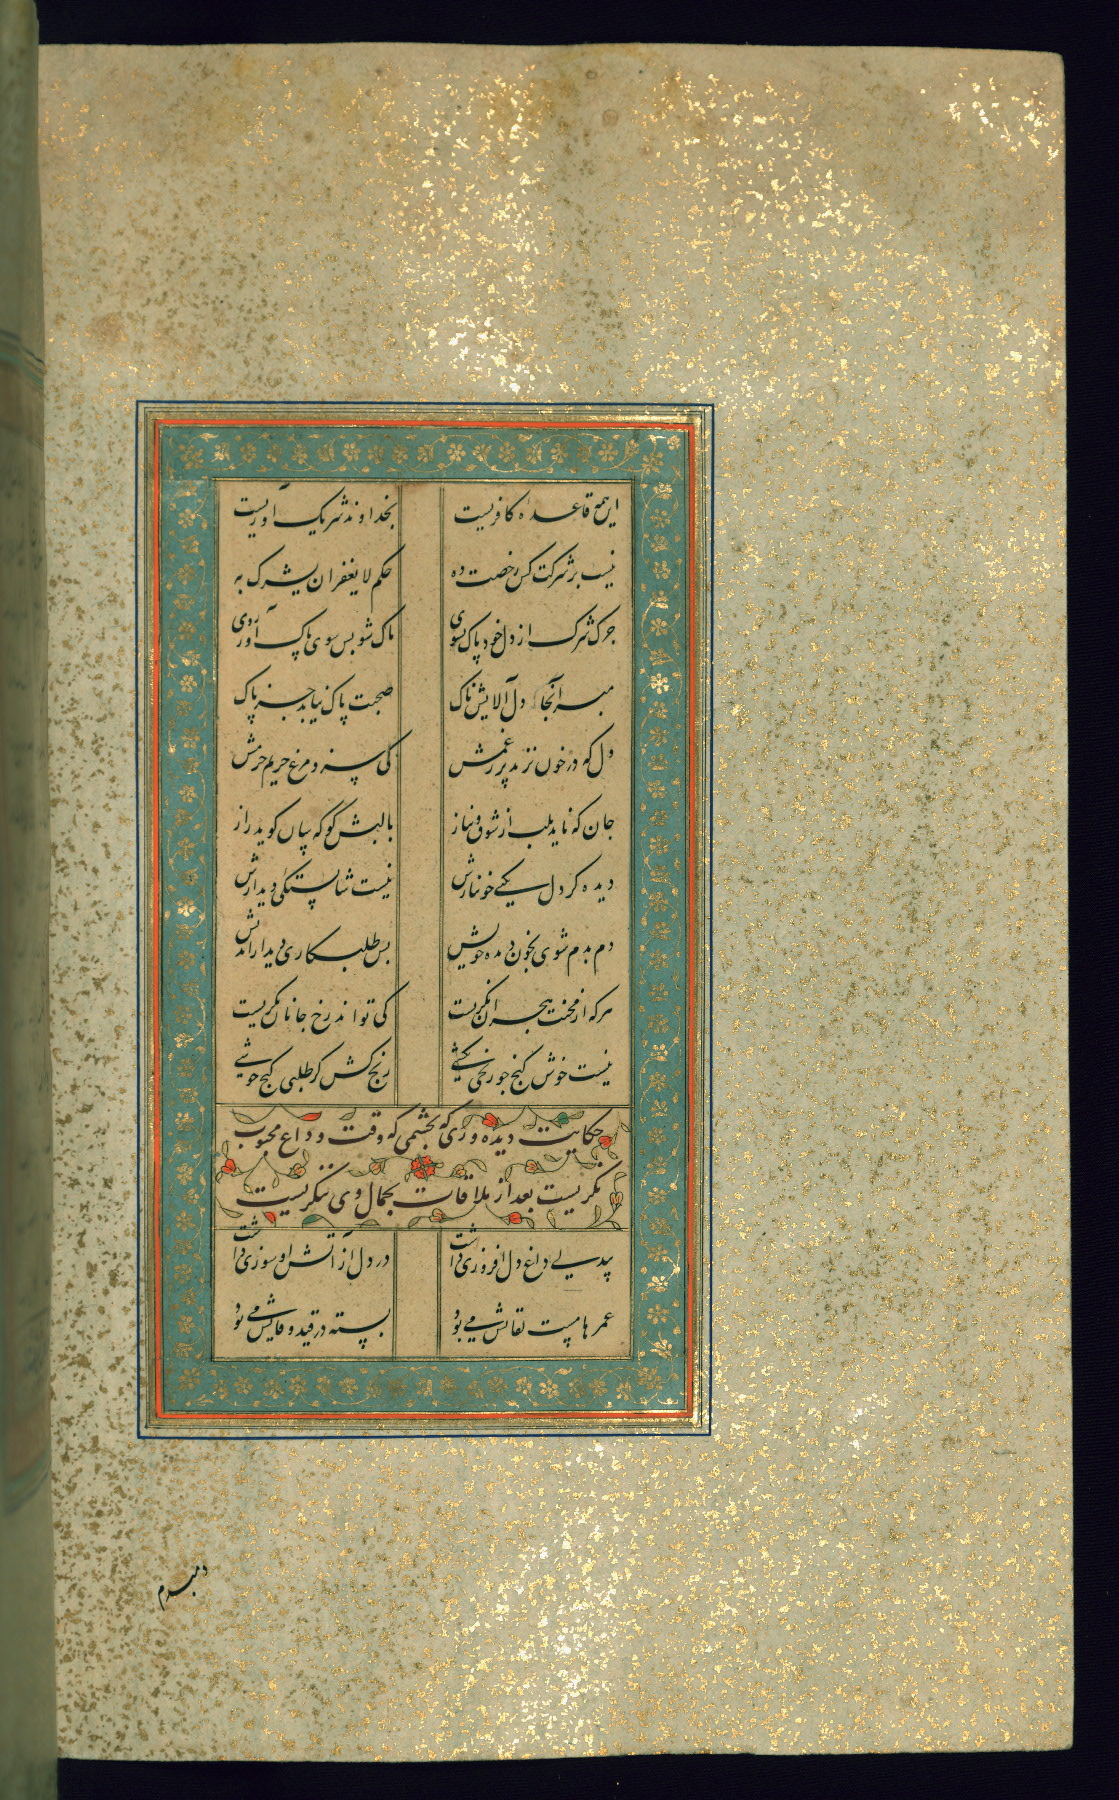 این همه قاعده کافریست بخداوند شریک آوریست
نیست بر شرکت کس رخصت ده حکم لا یغفر ان یشرک به
چرک شرک از دل خود پاک بشوی پاک شو پس سوی پاک آور روی
دل آلایش ناک صحبت پاک نیابد جز پاک
دل که در خون نزند پر ز غمش کی پرد مرغ حریم حرمش
جان که ناید بلب از شوق و نیاز با لبش گو که بیان گوید راز
دیده کز دل نکنی خونبارش نیست شایستگی دیدارش
دم بدم شوی بخون دیده خویش پس طلبکاری دیدار اندیش
هر که از محنت هجران نگریست کی تواند رخ جانان نگریست
نیست خوش گنج چو رنجی نکشی رنج کش گر طلبی گنج خوشی
حکایت دیده وری که بچشمی که وقت وداع محبوب
نگریست بعد از ملاقات بجمال وی ننگریست
بیدلی داغ دل افروزی داشت در دل از آتش او سوزی داشت
عمرها مست لقایش می بود بسته در قید وفایش می بود